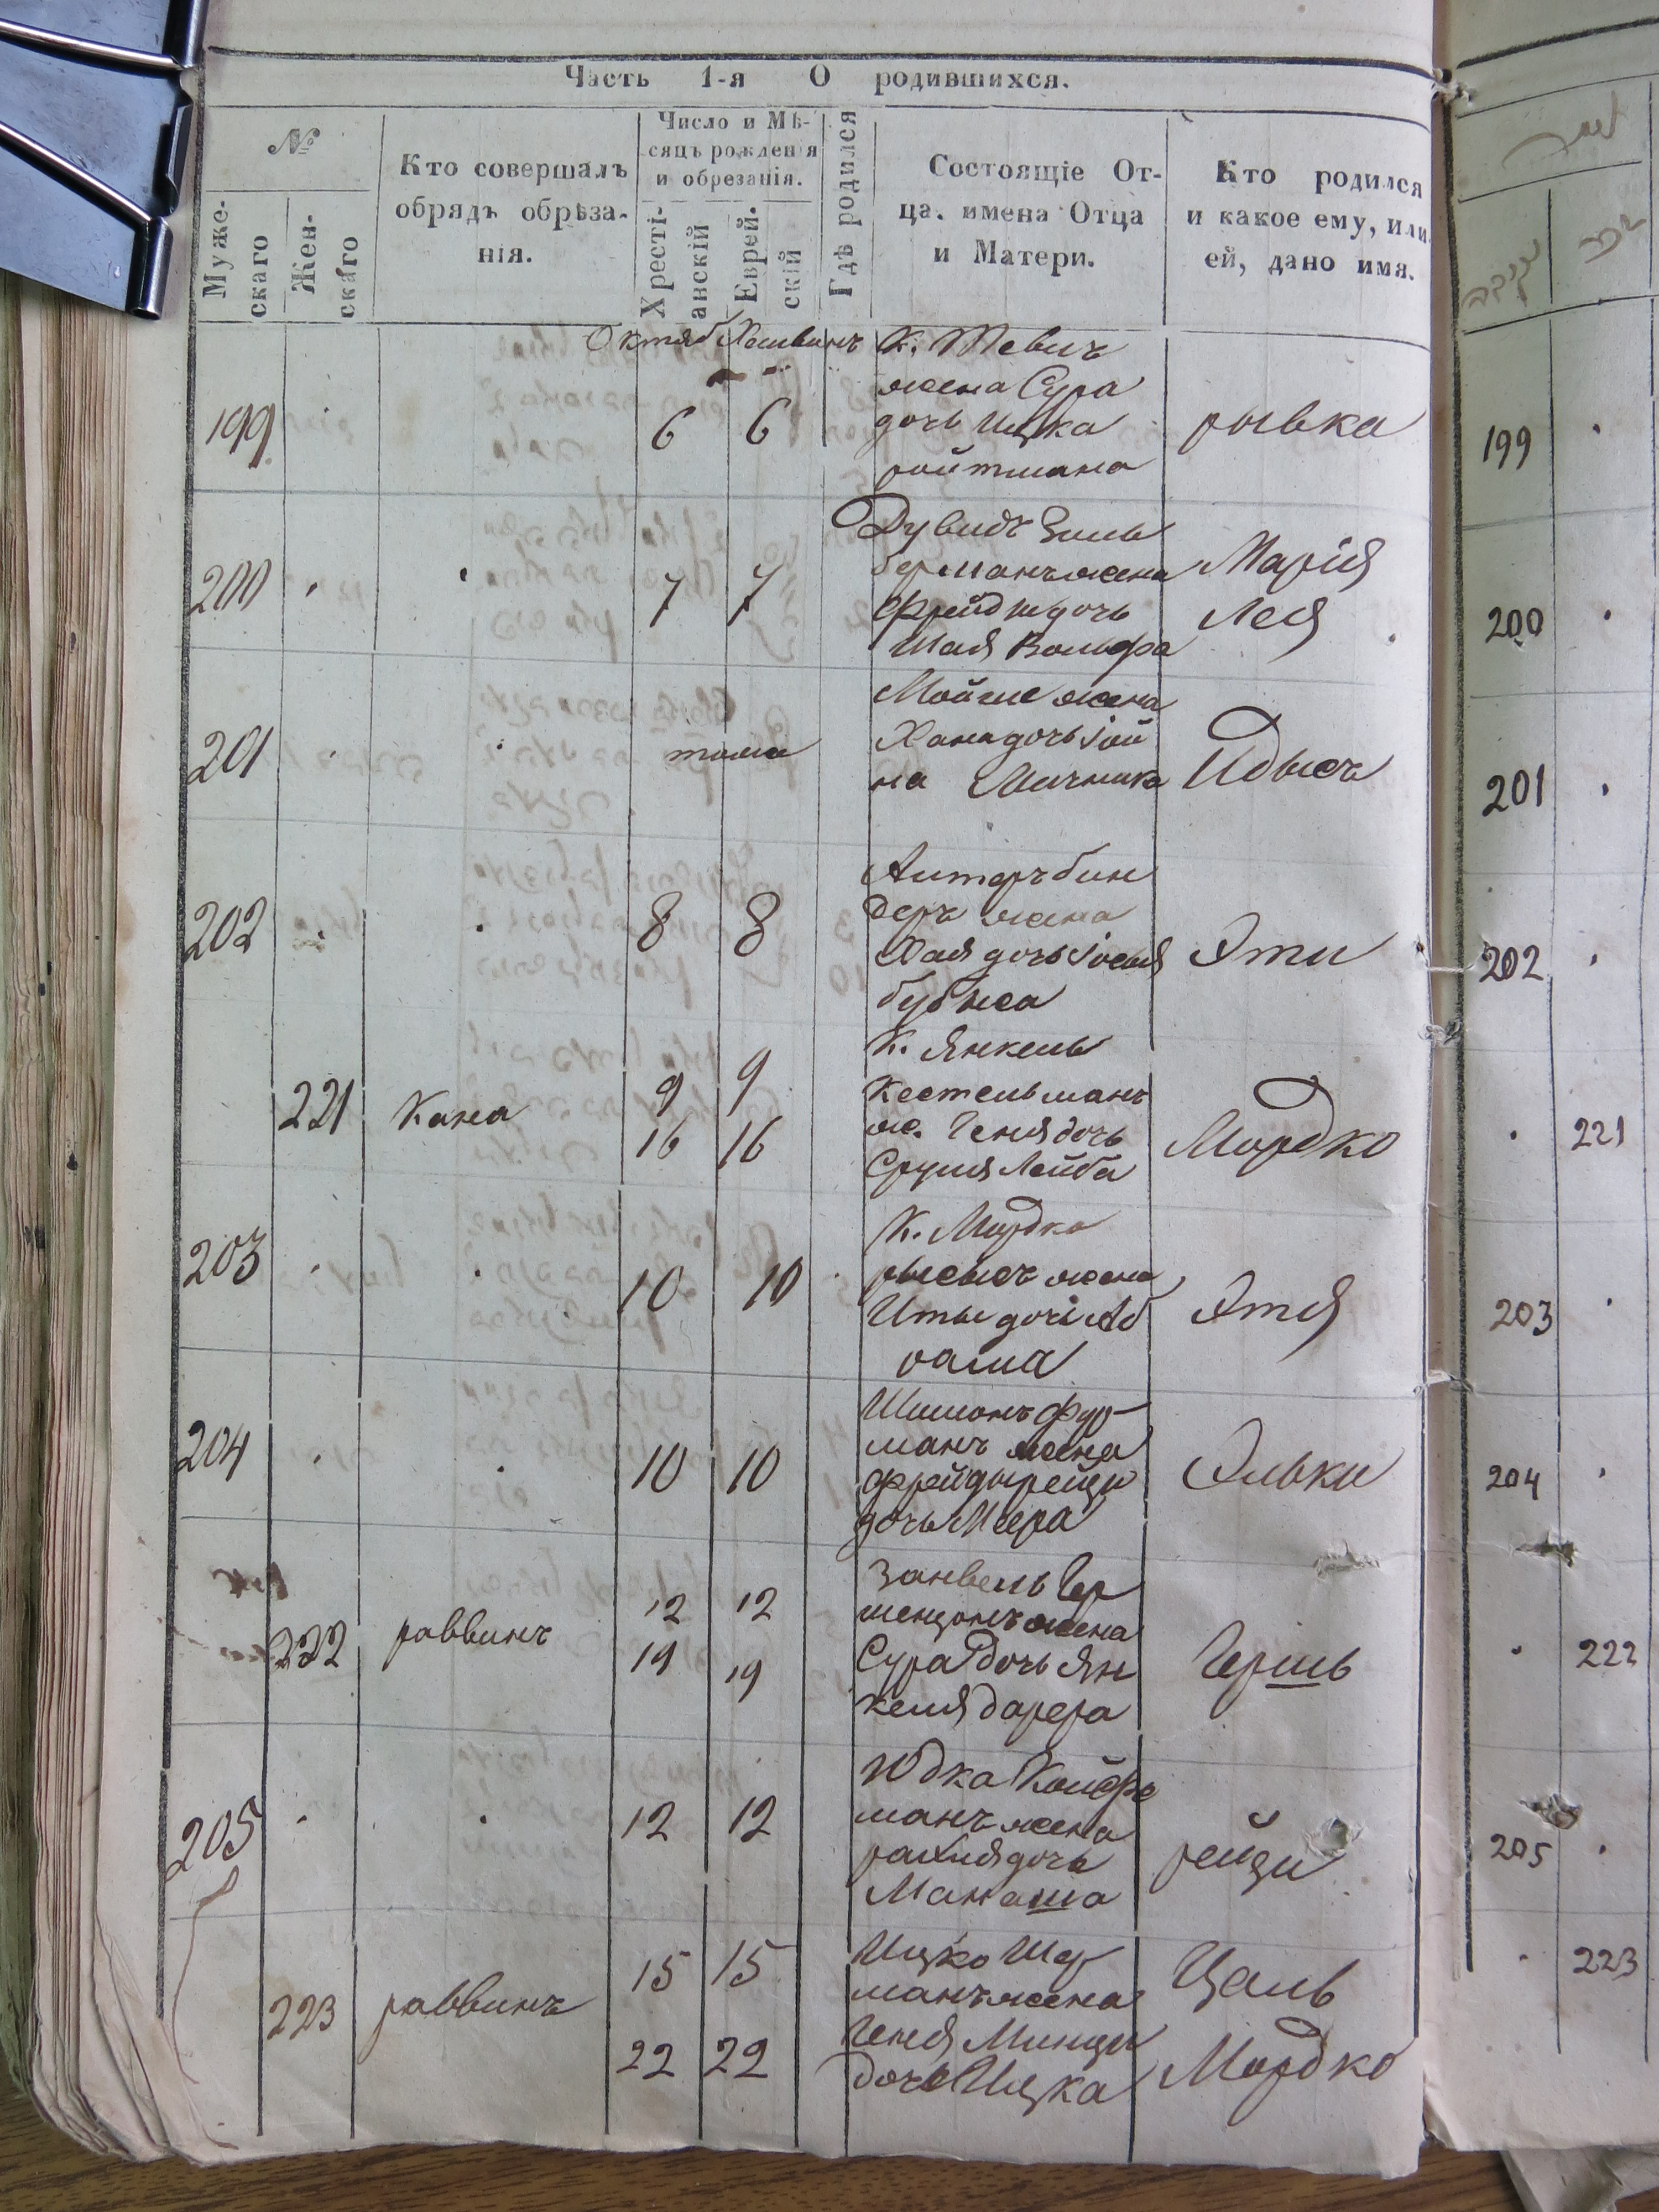 Часть 1-я О родившихся.
№
Муже-
скаго
Жен-
скаго
Кто совершалъ
обрядъ обрѣза-
нія.
Число и Мѣ-
сяцъ рожденія
и обрезанія.
Хресті-
анскій
Еврей-
скій
Гдѣ родился
Состоящіе От-
ца. имена Отца
и Матери.
Кто родился
и какое ему, или
ей, дано имя.
Октяб Хешвинъ
199
6 6
К.
жена Сура
дочь Ицка
ройтмана
рывка
199
200
7 7
Дувидъ Зиль
берманъ жена
Фрейды дочь
Шая Вольфа
Марія
Лея
200
201
тоже
Мойше жена
Хана дочь іой
на
Идысъ
201
202
8 8
Алтеръ бин
деръ жена
Хая дочь іосея
Эти
202
221
Кана
9 9
16 16
К. Янкель
Кестельманъ
ж. Геня дочь
Сруля Лейба
Мордко
221
203
10 10
К. Мордко
жена
Иты дочь Аб
рама
Этя
203
204
10 10
Шимонъ фур-
манъ жена
фрейды рейзи
дочь Меера
Эльки
204
222
раввинъ
12 12
19 19
Занвель Гер
шенцонъ жена
Сура дочь Ян
келя дорера
Гершь
222
205
12 12
Юдка Койфе
манъ жена
рахля дочь
Манаша
рейзи
205
223
раввинъ
15 15
22 22
Ицко Шер
манъ жена
Геня Минцы
дочь Ицка
Цаль
Мордко
223